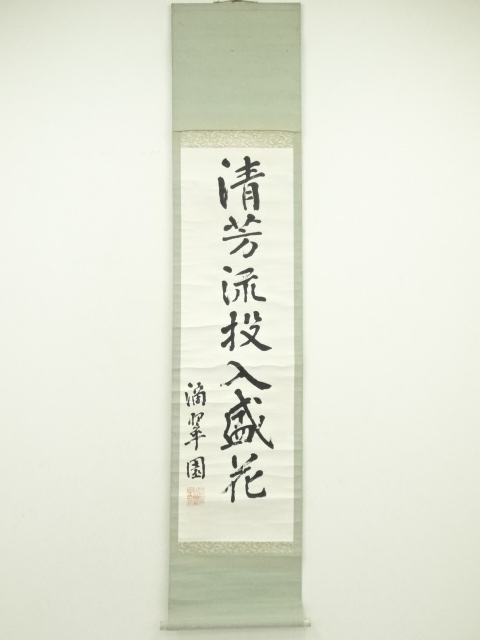 清芳流投入盛花
滴翠園